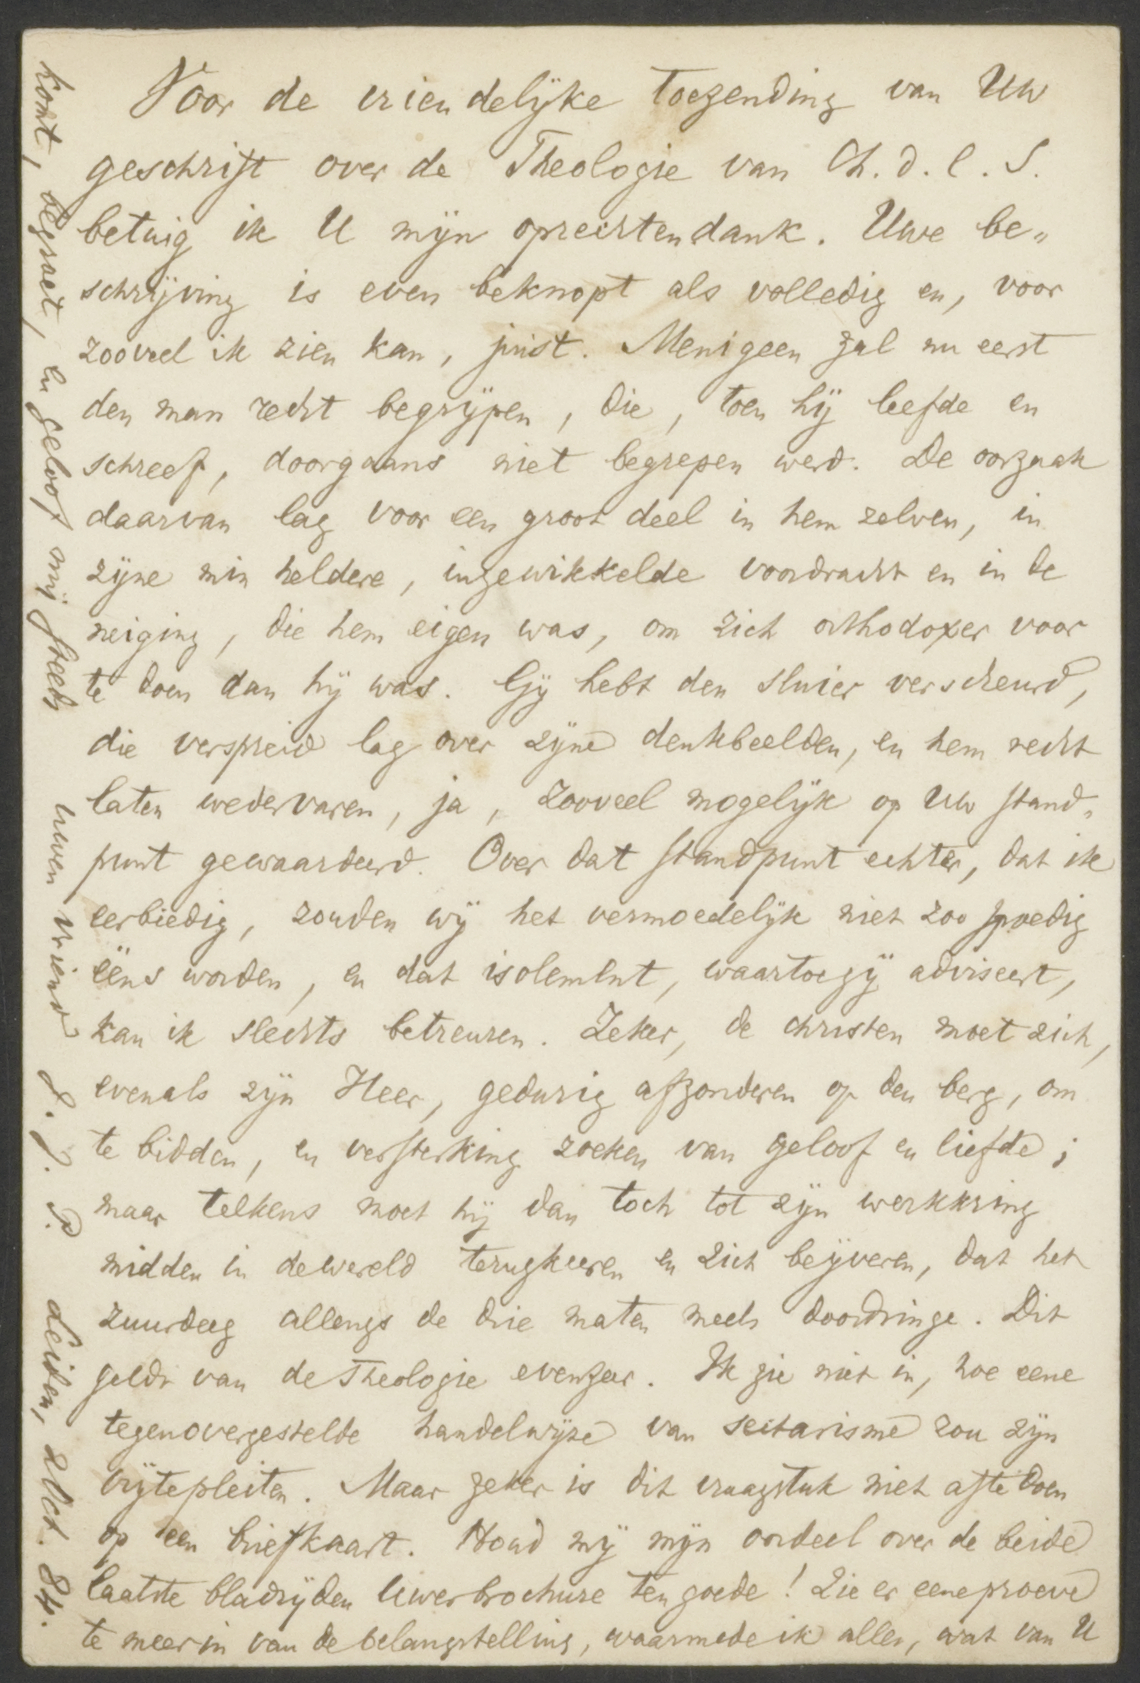 Voor de vriendelijke toezending van Uw
geschrift over de Theologie van Ch. d. l. S.
betuig ik U mijn oprechten dank. Uwe be„
schrijving is even beknopt als volledig en, voor
zooveel ik zien kan, juist. Menigeen zal nu eerst
den man recht begrijpen, die, toen hij leefde en
schreef, doorgaans niet begrepen werd. De oorzaak
daarvan lag voor een groot deel in hem zelven, in
zijne min heldere, ingewikkelde voordracht en in de
neiging, die hem eigen was, om zich orthodoxer voor
te doen dan hij was. Gij hebt den sluier verscheurd,
die verspreid lag over zijne denkbeelden, en hem recht
laten wedervaren, ja, zooveel mogelijk op Uw stand„
punt gewaardeerd. Over dat standpunt echter, dat ik
eerbiedig, zouden wij het vermoedelijk niet zoo spoedig
ééns worden, en dat isolement, waartoe gij adviseert,
kan ik slechts betreuren. Zeker, de christen moet zich,
evenals zijn Heer, gedurig afzonderen op den berg, om
te bidden, en versterking zoeken van geloof en liefde;
maar telkens moet hij dan toch tot zijn werkkring
midden in de wereld terugkeeren en zich beijveren, dat het
zuurdeeg allengs de drie maten meels doordringe. Dit
geldt van de Theologie evenzeer. Ik zie niet in, hoe eene
tegenovergestelde handelwijze van sectarisme zou zijn
vrijtepleiten. Maar zeker is dit vraagstuk niet afte doen
op een briefkaart. Houd mij mijn oordeel over de beide
laatste bladzijden Uwer brochure ten goede! Zie er eene proeve
te meer in van de belangstelling, waarmede ik alles, wat van U
komt, begroet, en geloof mij steeds uwen vriend J. J. P. Leiden, 2 Oct. 84.